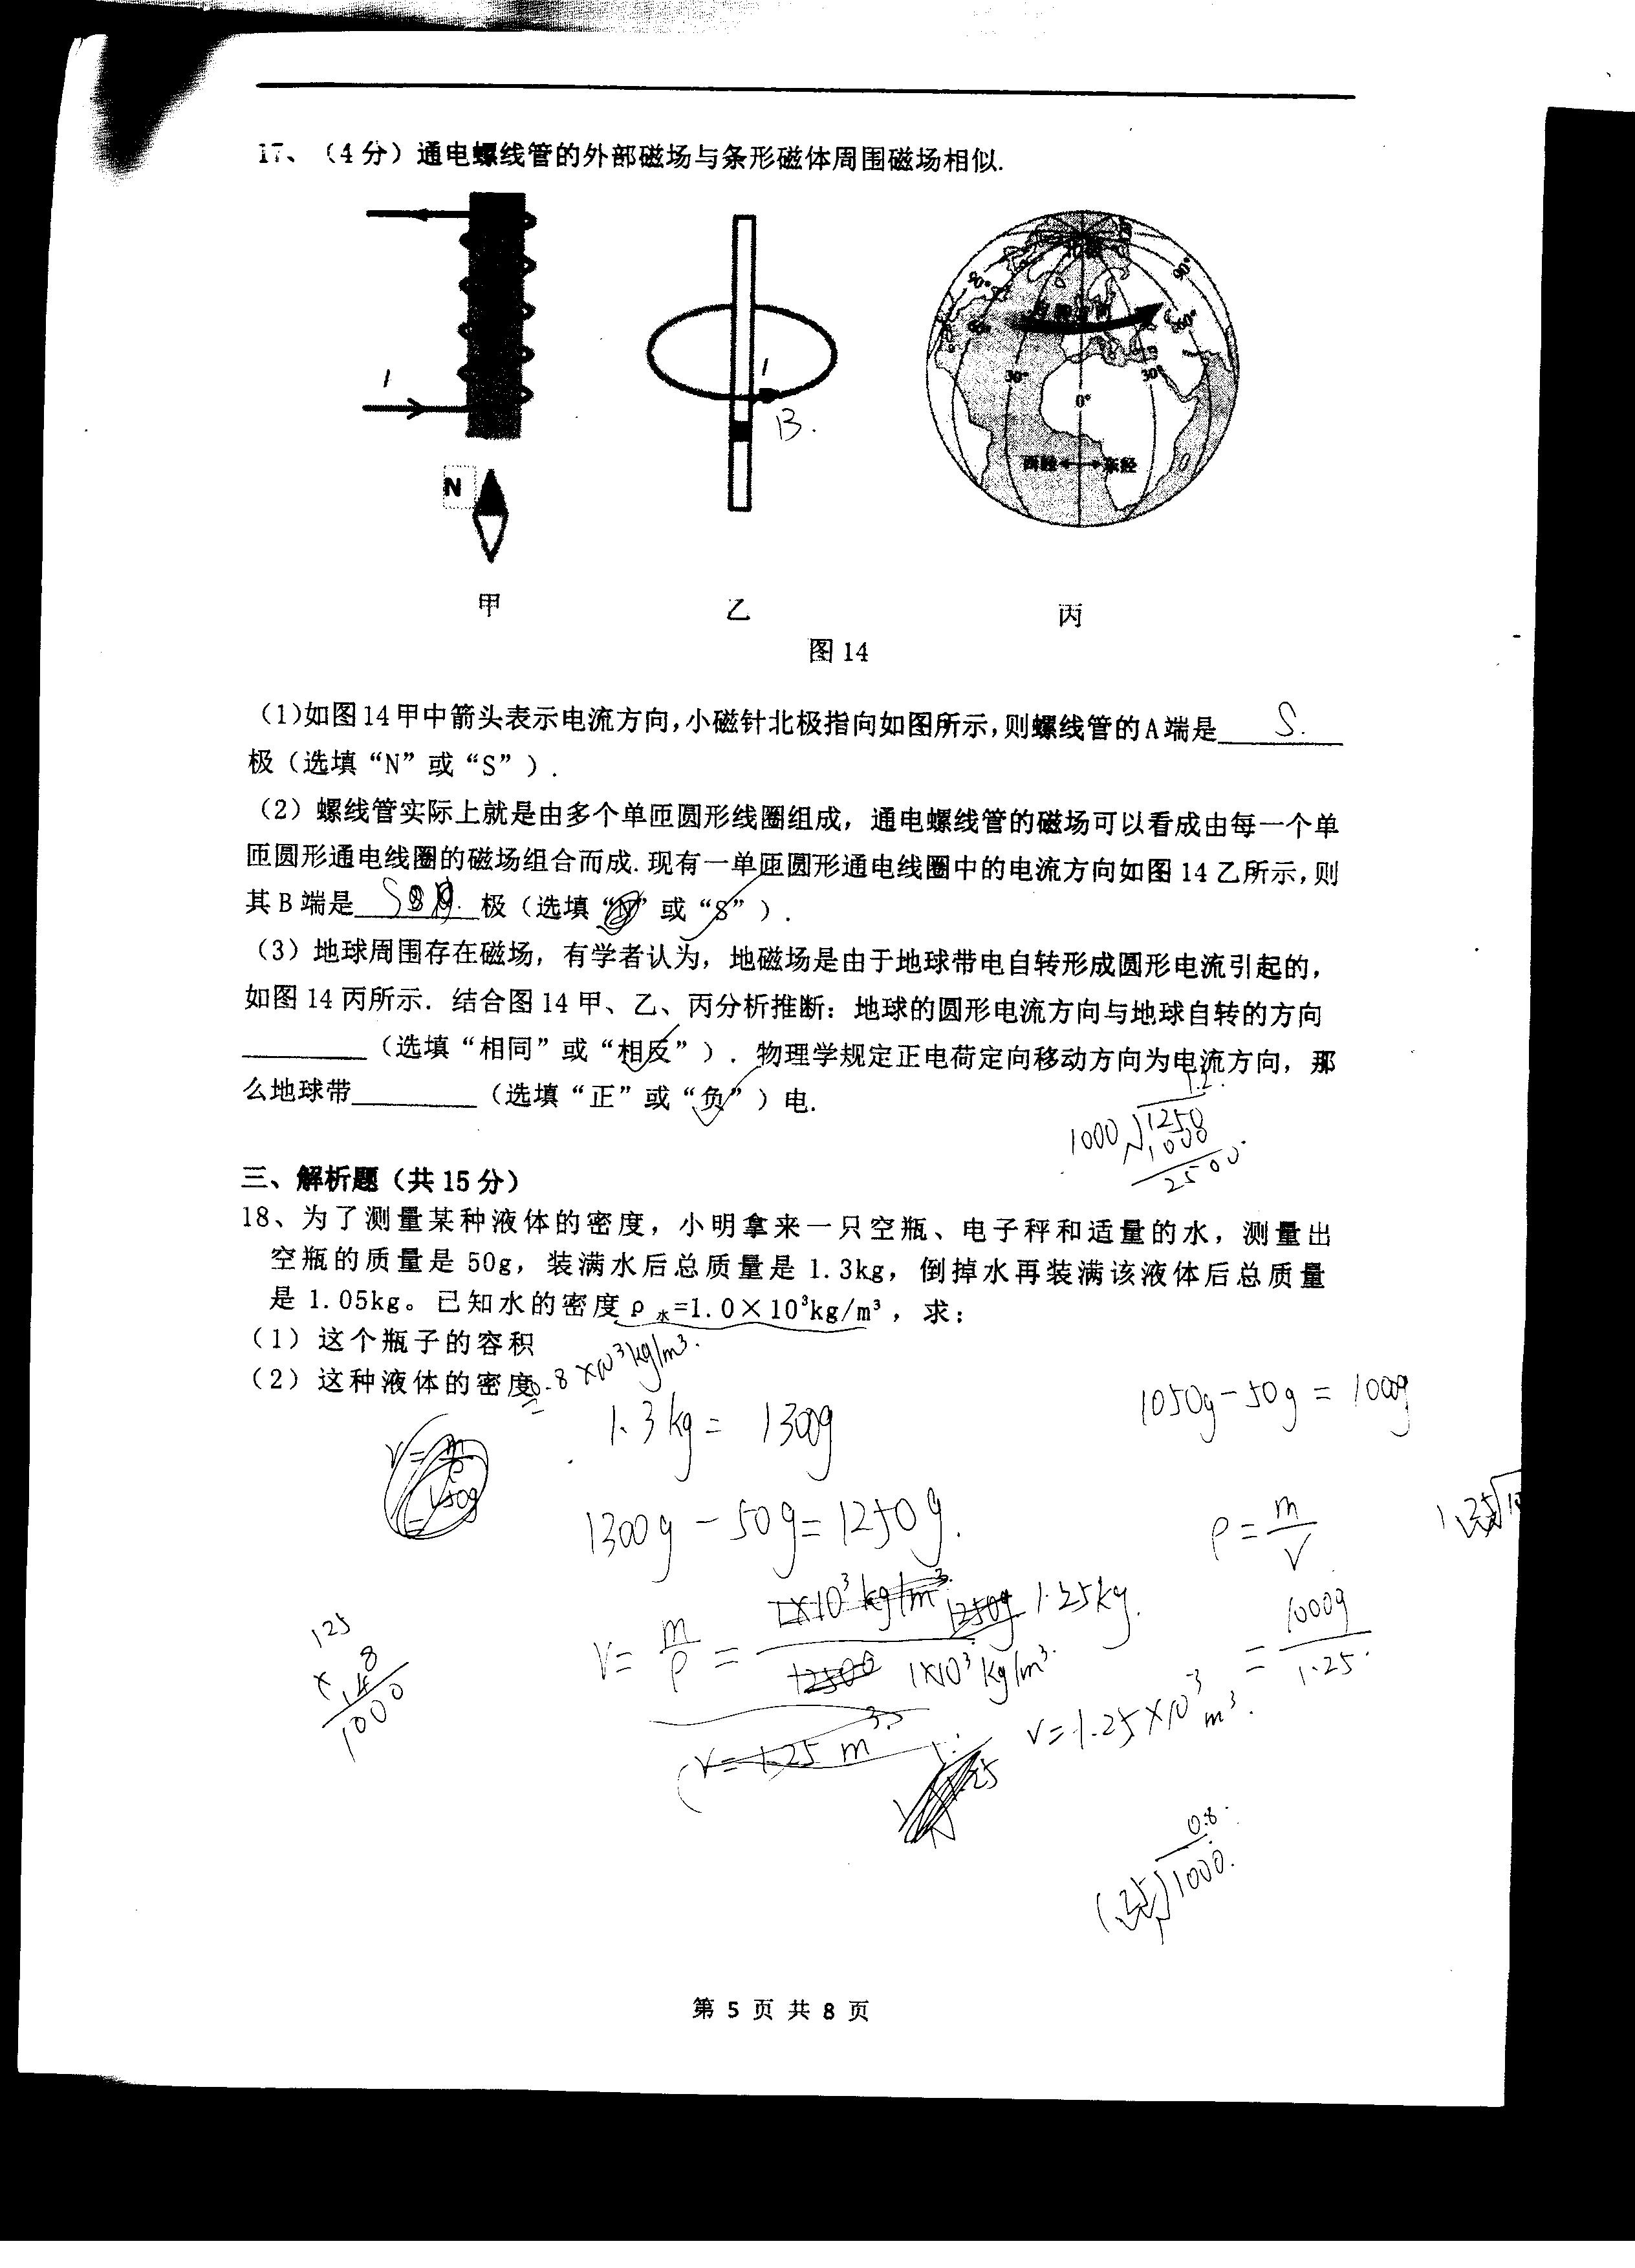 17、（4分）通电螺线管的外部磁场与条形磁体周围磁场相似.
I
N
甲
I
B.
乙
90°
90°
60°
60°
30°
30°
0°
西经
东经
丙
图 14
（1)如图14甲中箭头表示电流方向,小磁针北极指向如图所示,则螺线管的A端是 S.
极（选填“N”或“S”）.
（2）螺线管实际上就是由多个单匝圆形线圈组成，通电螺线管的磁场可以看成由每一个单
匝圆形通电线圈的磁场组合而成.现有一单匝圆形通电线圈中的电流方向如图14乙所示,则
其B端是 极（选填“N”或“S”）.
（3）地球周围存在磁场，有学者认为，地磁场是由于地球带电自转形成圆形电流引起的，
如图14丙所示．结合图14甲、乙、丙分析推断：地球的圆形电流方向与地球自转的方向
________（选填“相同”或“相反”）．物理学规定正电荷定向移动方向为电流方向，那
么地球带________（选填“正”或“负”）电.
1.2.
1000
1250
1000
2500
三、解析题（共15分）
18、为了测量某种液体的密度，小明拿来一只空瓶、电子秤和适量的水，测量出
空瓶的质量是50g，装满水后总质量是1.3kg，倒掉水再装满该液体后总质量
是1.05kg。已知水的密度ρ水=1.0×10³kg/m³，求：
（1）这个瓶子的容积
（2）这种液体的密度
=0.8×10³kg/m³.
1.3kg= 1300g
1050g-50g= 1000g
V=m/ρ
1300g-50g=1250g.
ρ=m/V
1.25
V=m/ρ= 1×10³kg/m³ 1250g 1.25kg.
1×10³kg/m³.
=1000g/1.25.
125
×  8
1000
V=1.25 m³.
V=1.25×10⁻³m³.
0.8.
1000.
第 5 页 共 8 页